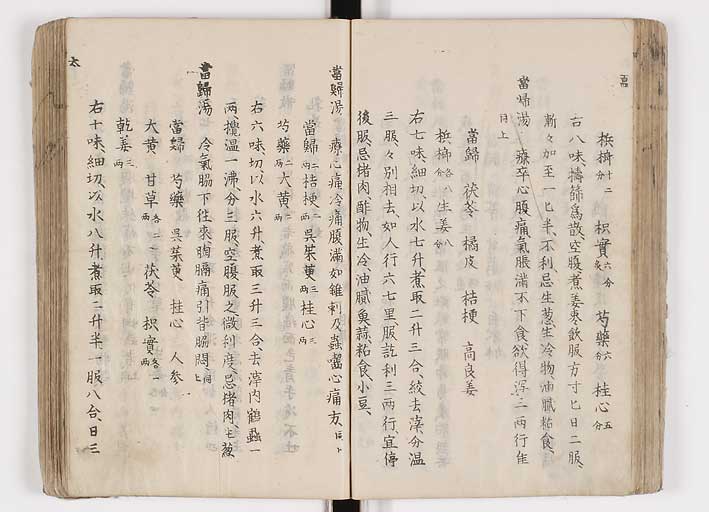 檳榔十二分 枳實六分炙 芍藥六分 桂心五分
右八味擣篩爲散空腹煮姜棗飲服方寸匕日二服、
漸々加至一匕半、不利、忌生葱生冷物油膩粘食、
當歸湯 療卒心腹痛氣脹滿不下食欲得瀉三兩行佳
同上
當歸 茯苓 橘皮 桔梗 高良姜
檳榔各八分 生姜八分
右七味、細切、以水七升、煮取二升三合、絞去滓、分温
三服、々別相去、如人行六七里服訖利三兩行、宜停
後服、忌猪肉酢物生冷油膩魚蒜粘食小豆、
當歸湯 療心痛冷痛腹滿如錐刺及蟲齧心痛方、同上
當歸二兩 桔梗二兩 呉茱萸三兩 桂心三兩
芍藥二兩 大黄二兩
右六味切、以水六升、煮取三升三合、去滓内鶴蝨一
兩、攪温一沸、分三服、空腹服之微利度、忌猪肉、生葱
當歸湯 冷氣脇下往來、胸膈痛引背脇悶、同上
當歸 芍藥 呉茱萸 桂心 人參
大黄 甘草各二兩 茯苓 枳實各一兩
乾姜三兩
右十味、細切、以水八升、煮取二升半一服八合、日三
太